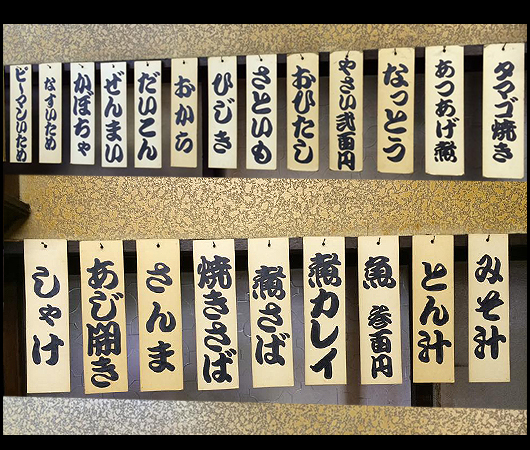 タマゴ焼き
あつあげ煮
なっとう
やさい弐百円
おひたし
さといも
ひじき
おから
だいこん
ぜんまい
かぼちゃ
なすいため
ピーマンいため
みそ汁
とん汁
魚 参百円
煮カレイ
煮さば
焼きさば
さんま
あじ開き
しゃけ